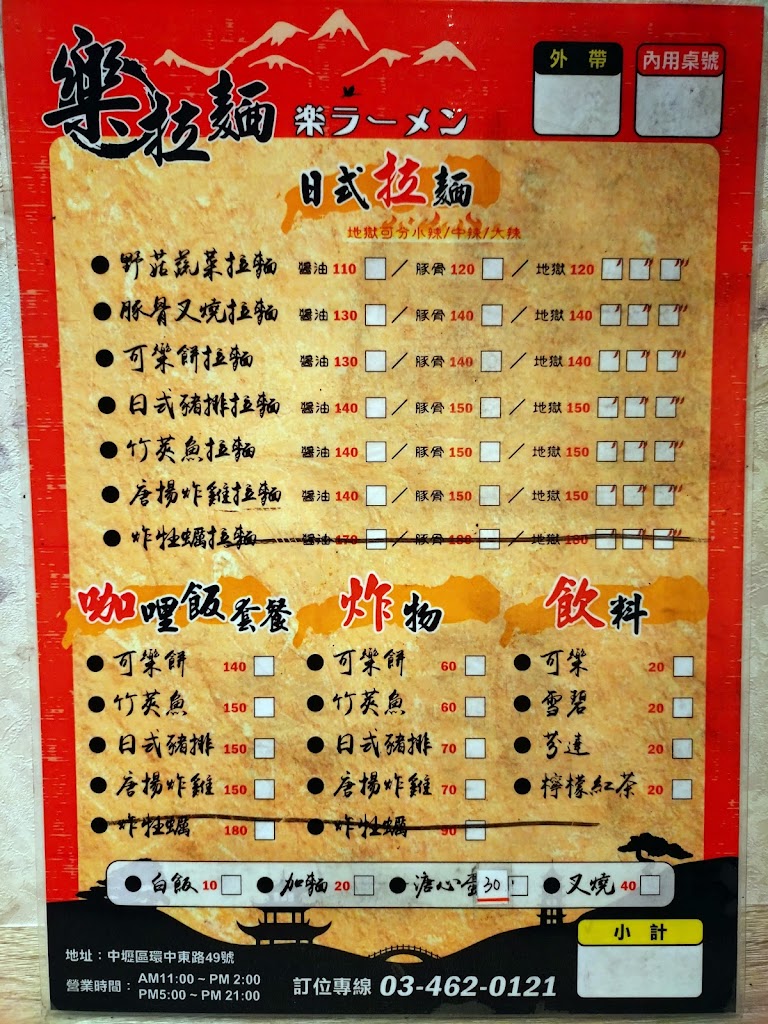 樂拉麵 楽ラーメン
外帶 內用桌號
日式拉麵
地獄可分小辣/中辣/大辣
● 野菇蔬菜拉麵 醬油 110 / 豚骨 120 / 地獄 120
● 豚骨叉燒拉麵 醬油 130 / 豚骨 140 / 地獄 140
● 可樂餅拉麵 醬油 130 / 豚骨 140 / 地獄 140
● 日式豬排拉麵 醬油 140 / 豚骨 150 / 地獄 150
● 竹莢魚拉麵 醬油 140 / 豚骨 150 / 地獄 150
● 唐揚炸雞拉麵 醬油 140 / 豚骨 150 / 地獄 150
● 炸牡蠣拉麵 醬油 170 / 豚骨 180 / 地獄 180
咖哩飯套餐
● 可樂餅 140
● 竹莢魚 150
● 日式豬排 150
● 唐揚炸雞 150
● 炸牡蠣 180
炸物
● 可樂餅 60
● 竹莢魚 60
● 日式豬排 70
● 唐揚炸雞 70
● 炸牡蠣 90
飲料
● 可樂 20
● 雪碧 20
● 芬達 20
● 檸檬紅茶 20
● 白飯 10 ● 加麵 20 ● 溏心蛋 30 ● 叉燒 40
小計
地址：中壢區環中東路49號
營業時間：AM11:00 ~ PM 2:00
PM5:00 ~ PM 21:00
訂位專線 03-462-0121